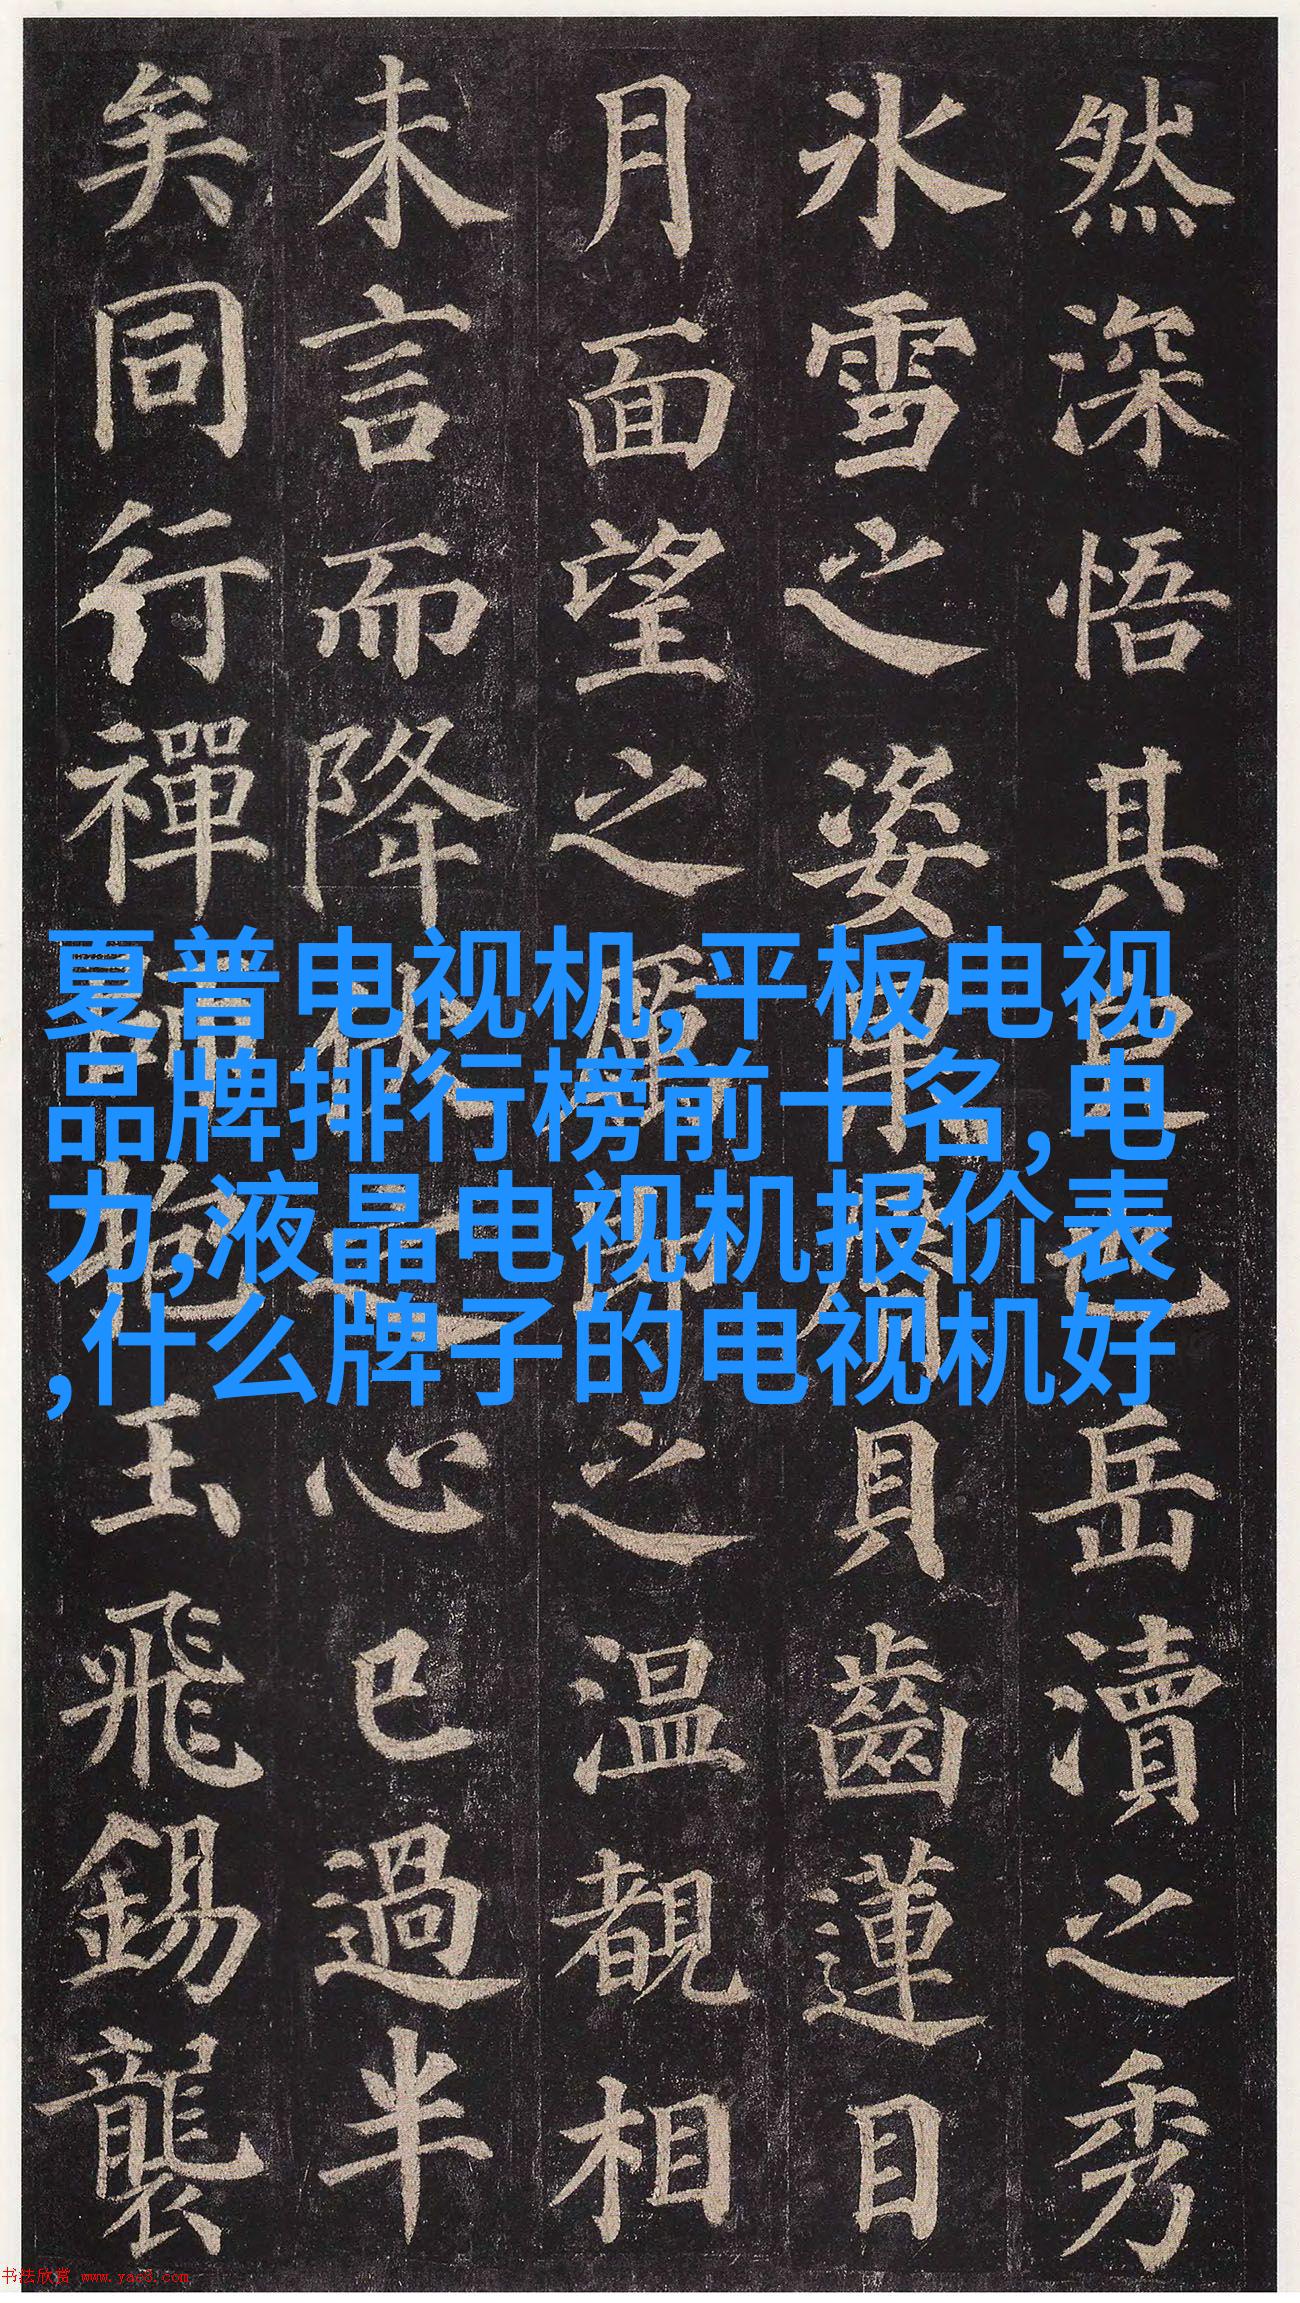 然深悟其也岳瀆之秀
氷雪之姿果脣貝齒蓮目
月面望之厲即之温覩相
未言而降伏之心已過半
矣同行禪師抱玉飛錫襲
夏普电视机,平板电视
品牌排行榜前十名,电
力,液晶电视机报价表
,什么牌子的电视机好
书法欣赏 www.yac8.com